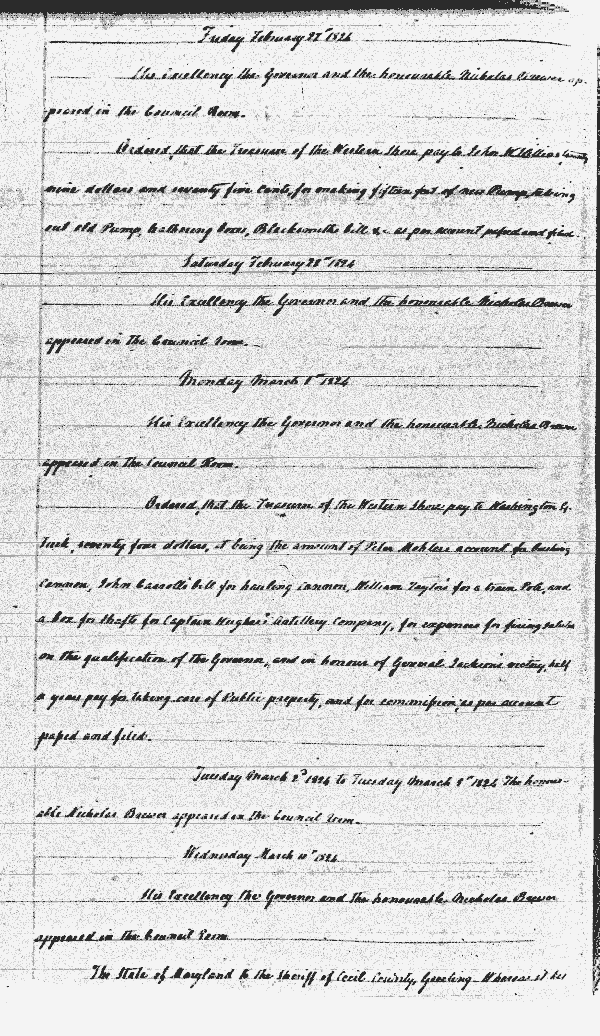 Friday February 27th 1824
His Excellency the Governor and the honourable Nicholas Brewer ap-
peared in the Council Room.
Ordered, that the Treasurer of the Western Shore pay to John W.
nine dollars and seventy five Cents, for making fifteen feet of new Pump, taking
out old Pump, leathering boxes, Blacksmiths bill &c as per account passed and filed.
Saturday February 28th 1824
His Excellency the Governor and the honourable Nicholas Brewer
appeared in the Council Room.
Monday March 1st 1824
His Excellency the Governor and the honourable Nicholas Brewer
appeared in the Council Room.
Ordered, that the Treasurer of the Western Shore pay to Washington G.
Tuck, seventy four dollars, it being the amount of Peter Mohlers account for
Cannon, John Carroll's bill for hauling Cannon, William Taylor's for a train Pole, and
a box for shafts for Captain Hughes's Artillery Company, for expences for firing salutes
on the qualification of the Governor, and in honour of General Jacksons victory, half
a years pay for taking care of Public property, and for commission, as per account
passed and filed.
Tuesday March 2d 1824 to Tuesday March 9th 1824 The honour-
able Nicholas Brewer appeared in the Council Room.
Wednesday March 10th 1824
His Excellency the Governor and the honourable Nicholas Brewer
appeared in the Council Room
The State of Maryland to the Sheriff of Cecil County, Greeting. Whereas it has